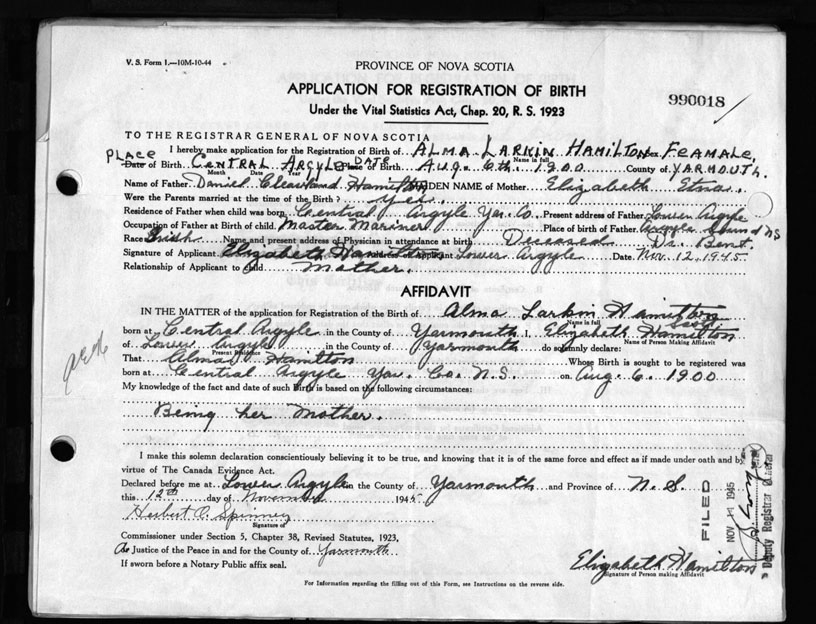 V. S. Form 1.—10M-10-44
PROVINCE OF NOVA SCOTIA
APPLICATION FOR REGISTRATION OF BIRTH
990018
Under the Vital Statistics Act, Chap. 20, R. S. 1923
TO THE REGISTRAR GENERAL OF NOVA SCOTIA
I hereby make application for the Registration of Birth of ALMA LARKIN HAMILTON Sex FEAMALE.
PLACE DATE Name in full
Date of Birth CENTRAL ARGYLE Place of Birth AUG. 6th. 1900 County of YARMOUTH.
Month Date Year
Name of Father Daniel Cleavland Hamilton MAIDEN NAME of Mother Elizabeth
Were the Parents married at the time of Birth ? Yes.
Residence of Father when child was born Central Argyle Yar. Co. Present address of Father Lower Argyle
Occupation of Father at Birth of child Master Mariner Place of birth of Father Argyle Sound NS
Race Name and present address of Physician in attendance at birth Deceased Dr. Bent.
Signature of Applicant Elizabeth Hamilton Address of Applicant Lower Argyle Date Nov. 12, 1945
Relationship of Applicant to child Mother.
AFFIDAVIT
IN THE MATTER of the application for Registration of the Birth of Alma Larkin Hamilton
Name in full
born at Central Argyle in the County of Yarmouth I, Elizabeth Hamilton
Name of Person Making Affidavit
of Lower Argyle in the County of Yarmouth do solemnly declare:
Present Residence
That Alma Hamilton Whose Birth is sought to be registered was
born at Central Argyle Yar. Co. N.S. on Aug. 6. 1900
My knowledge of the fact and date of such Birth is based on the following circumstances:
Being her Mother.
I make this solemn declaration conscientiously believing it to be true, and knowing that it is of the same force and effect as if made under oath and by
virtue of The Canada Evidence Act.
Declared before me at Lower Argyle in the County of Yarmouth and Province of N.S.
this 12th day of November 1945
Herbert O. Spinney
Signature of
Commissioner under Section 5, Chapter 38, Revised Statutes, 1923,
A Justice of the Peace in and for the County of Yarmouth
If sworn before a Notary Public affix seal.
Elizabeth Hamilton
Signature of Person making Affidavit
For Information regarding the filling out of this Form, see Instructions on the reverse side.
FILED
NOV 1945
Deputy Registrar General